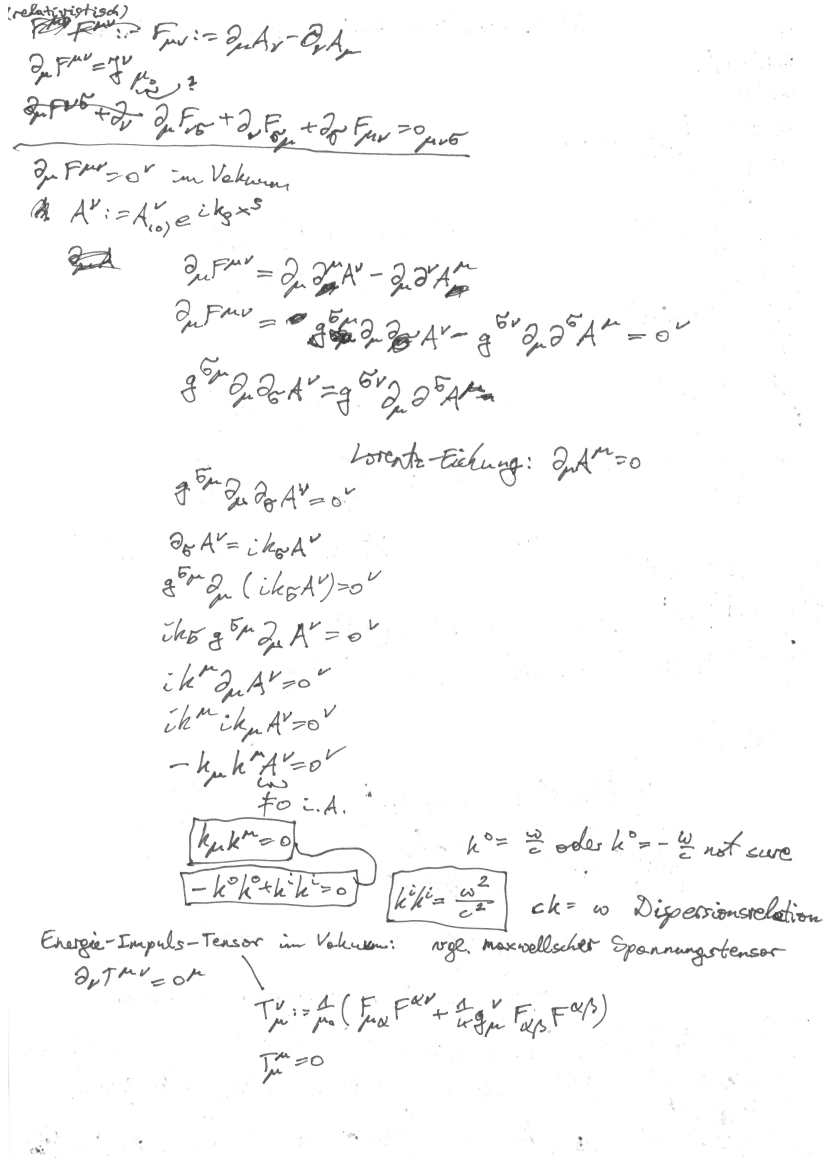 (relativistisch)
F^{μν} := F_{μν} := ∂_μ A_ν - ∂_ν A_μ
∂_μ F^{μν} = j^ν μ_0 ?
∂_μ F^{νσ} + ∂_ν ∂_μ F_{νσ} + ∂_ν F_{σμ} + ∂_σ F_{μν} = 0_{μνσ}
∂_μ F^{μν} = 0^ν im Vakuum
A^ν := A^ν_{(0)} e^{i k_ρ x^ρ}
∂_μ A
∂_μ F^{μν} = ∂_μ ∂^μ A^ν - ∂_μ ∂^ν A^μ
∂_μ F^{μν} = g^{σμ} ∂_μ ∂_σ A^ν - g^{σν} ∂_μ ∂^σ A^μ = 0^ν
g^{σμ} ∂_μ ∂_σ A^ν = g^{σν} ∂_μ ∂^σ A^μ
Lorentz-Eichung: ∂_μ A^μ = 0
g^{σμ} ∂_μ ∂_σ A^ν = 0^ν
∂_σ A^ν = i k_σ A^ν
g^{σμ} ∂_μ (i k_σ A^ν) = 0^ν
i k_σ g^{σμ} ∂_μ A^ν = 0^ν
i k^μ ∂_μ A^ν = 0^ν
i k^μ i k_μ A^ν = 0^ν
- k_μ k^μ A^ν = 0^ν
≠ 0 i.A.
k_μ k^μ = 0
k^0 = ω/c oder k^0 = - ω/c not sure
- k^0 k^0 + k^i k^i = 0
k^i k^i = ω²/c²
ck = ω Dispersionsrelation
Energie-Impuls-Tensor im Vakuum: vgl. maxwellscher Spannungstensor
∂_ν T^{μν} = 0^μ
T_μ^ν := 1/μ_0 ( F_{μα} F^{αν} + 1/4 g_μ^ν F_{αβ} F^{αβ} )
T_μ^μ = 0